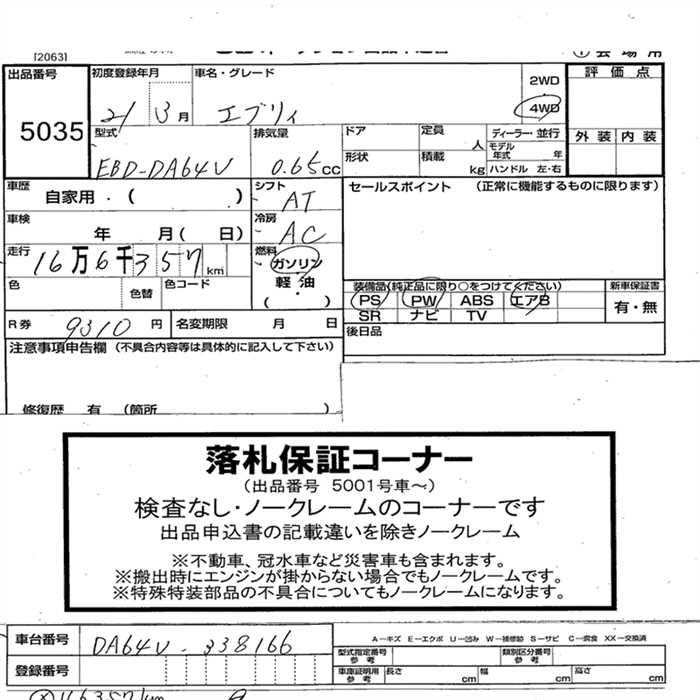 [2063]
出品番号 5035
初度登録年月 21 3月
車名・グレード エブリィ
2WD
4WD
評価点
外装 内装
型式 EBD-DA64V
排気量 0.65cc
ドア
定員 人
ディーラー・並行
モデル年式 年
形状
積載 kg
ハンドル 左・右
車歴 自家用・( )
シフト AT
セールスポイント (正常に機能するものに限ります)
車検 年 月( 日)
冷房 AC
走行 16万6千357km
燃料 ガソリン・軽油・( )
色
色替
色コード
装備品(純正品に限り○をつけてください)
新車保証書
PS PW ABS エアB
SR ナビ TV
有・無
R券 9310円
名変期限 月 日
後日品
注意事項申告欄 (不具合内容等は具体的に記入して下さい)
修復歴 有 (箇所 )
落札保証コーナー
(出品番号 5001号車~)
検査なし・ノークレームのコーナーです
出品申込書の記載違いを除きノークレーム
※不動車、冠水車など災害車も含まれます。
※搬出時にエンジンが掛からない場合でもノークレームです。
※特殊特装部品の不具合についてもノークレームになります。
車台番号 DA64V-338166
A-キズ E-エクボ U-凹み W-補修跡 S-サビ C-腐食 XX-交換済
型式指定番号 参考
類別区分番号 参考
登録番号
車庫証明用 参考 長さ cm 幅 cm 高さ cm